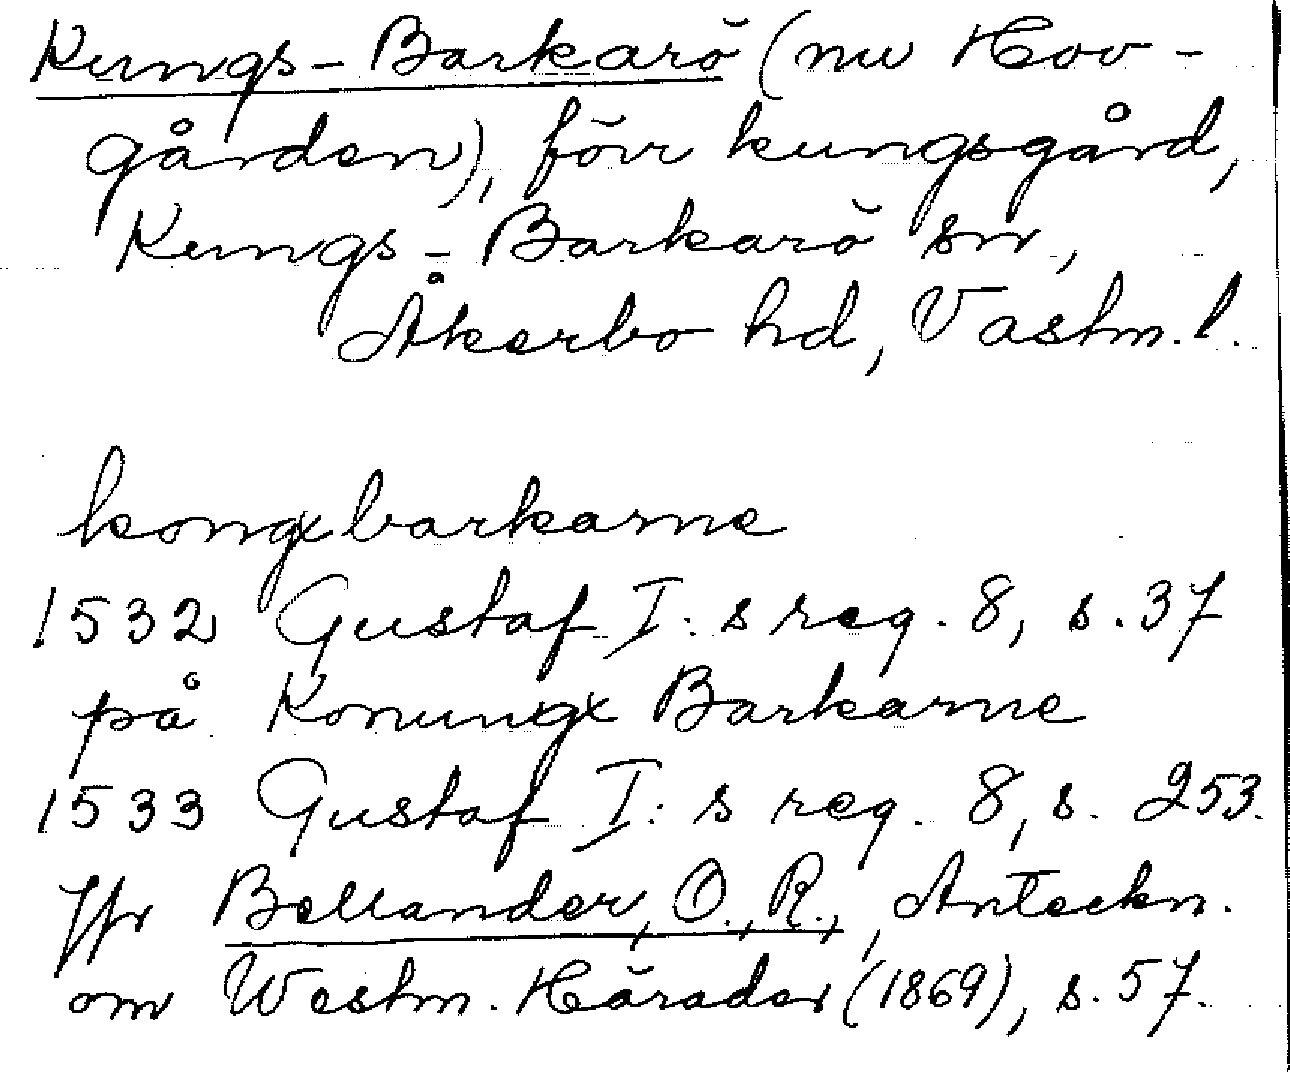 Kungs-Barkarö (nu Hov-
gården), förr kungsgård,
Kungs-Barkarö sn,
Åkerbo hd, Västm. l.
kongxbarkarne
1532 Gustaf I:s reg. 8, s. 37
på Konungx Barkarne
1533 Gustaf I:s reg. 8, s. 253.
Jfr Bellander, O., R., Anteckn.
om Westm. Härader (1869), s. 57.